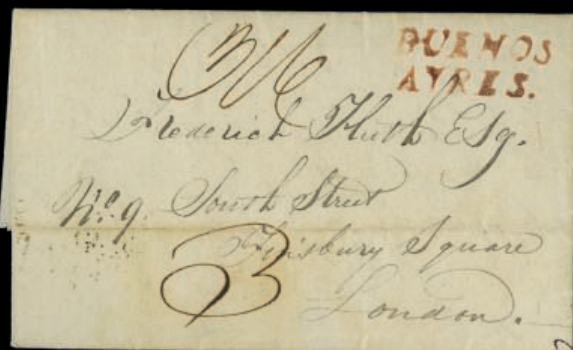 BUENOS
AYRES.
3/6
Frederich Huth Esq.
No. 9. South Street
Finsbury Square
3
London.